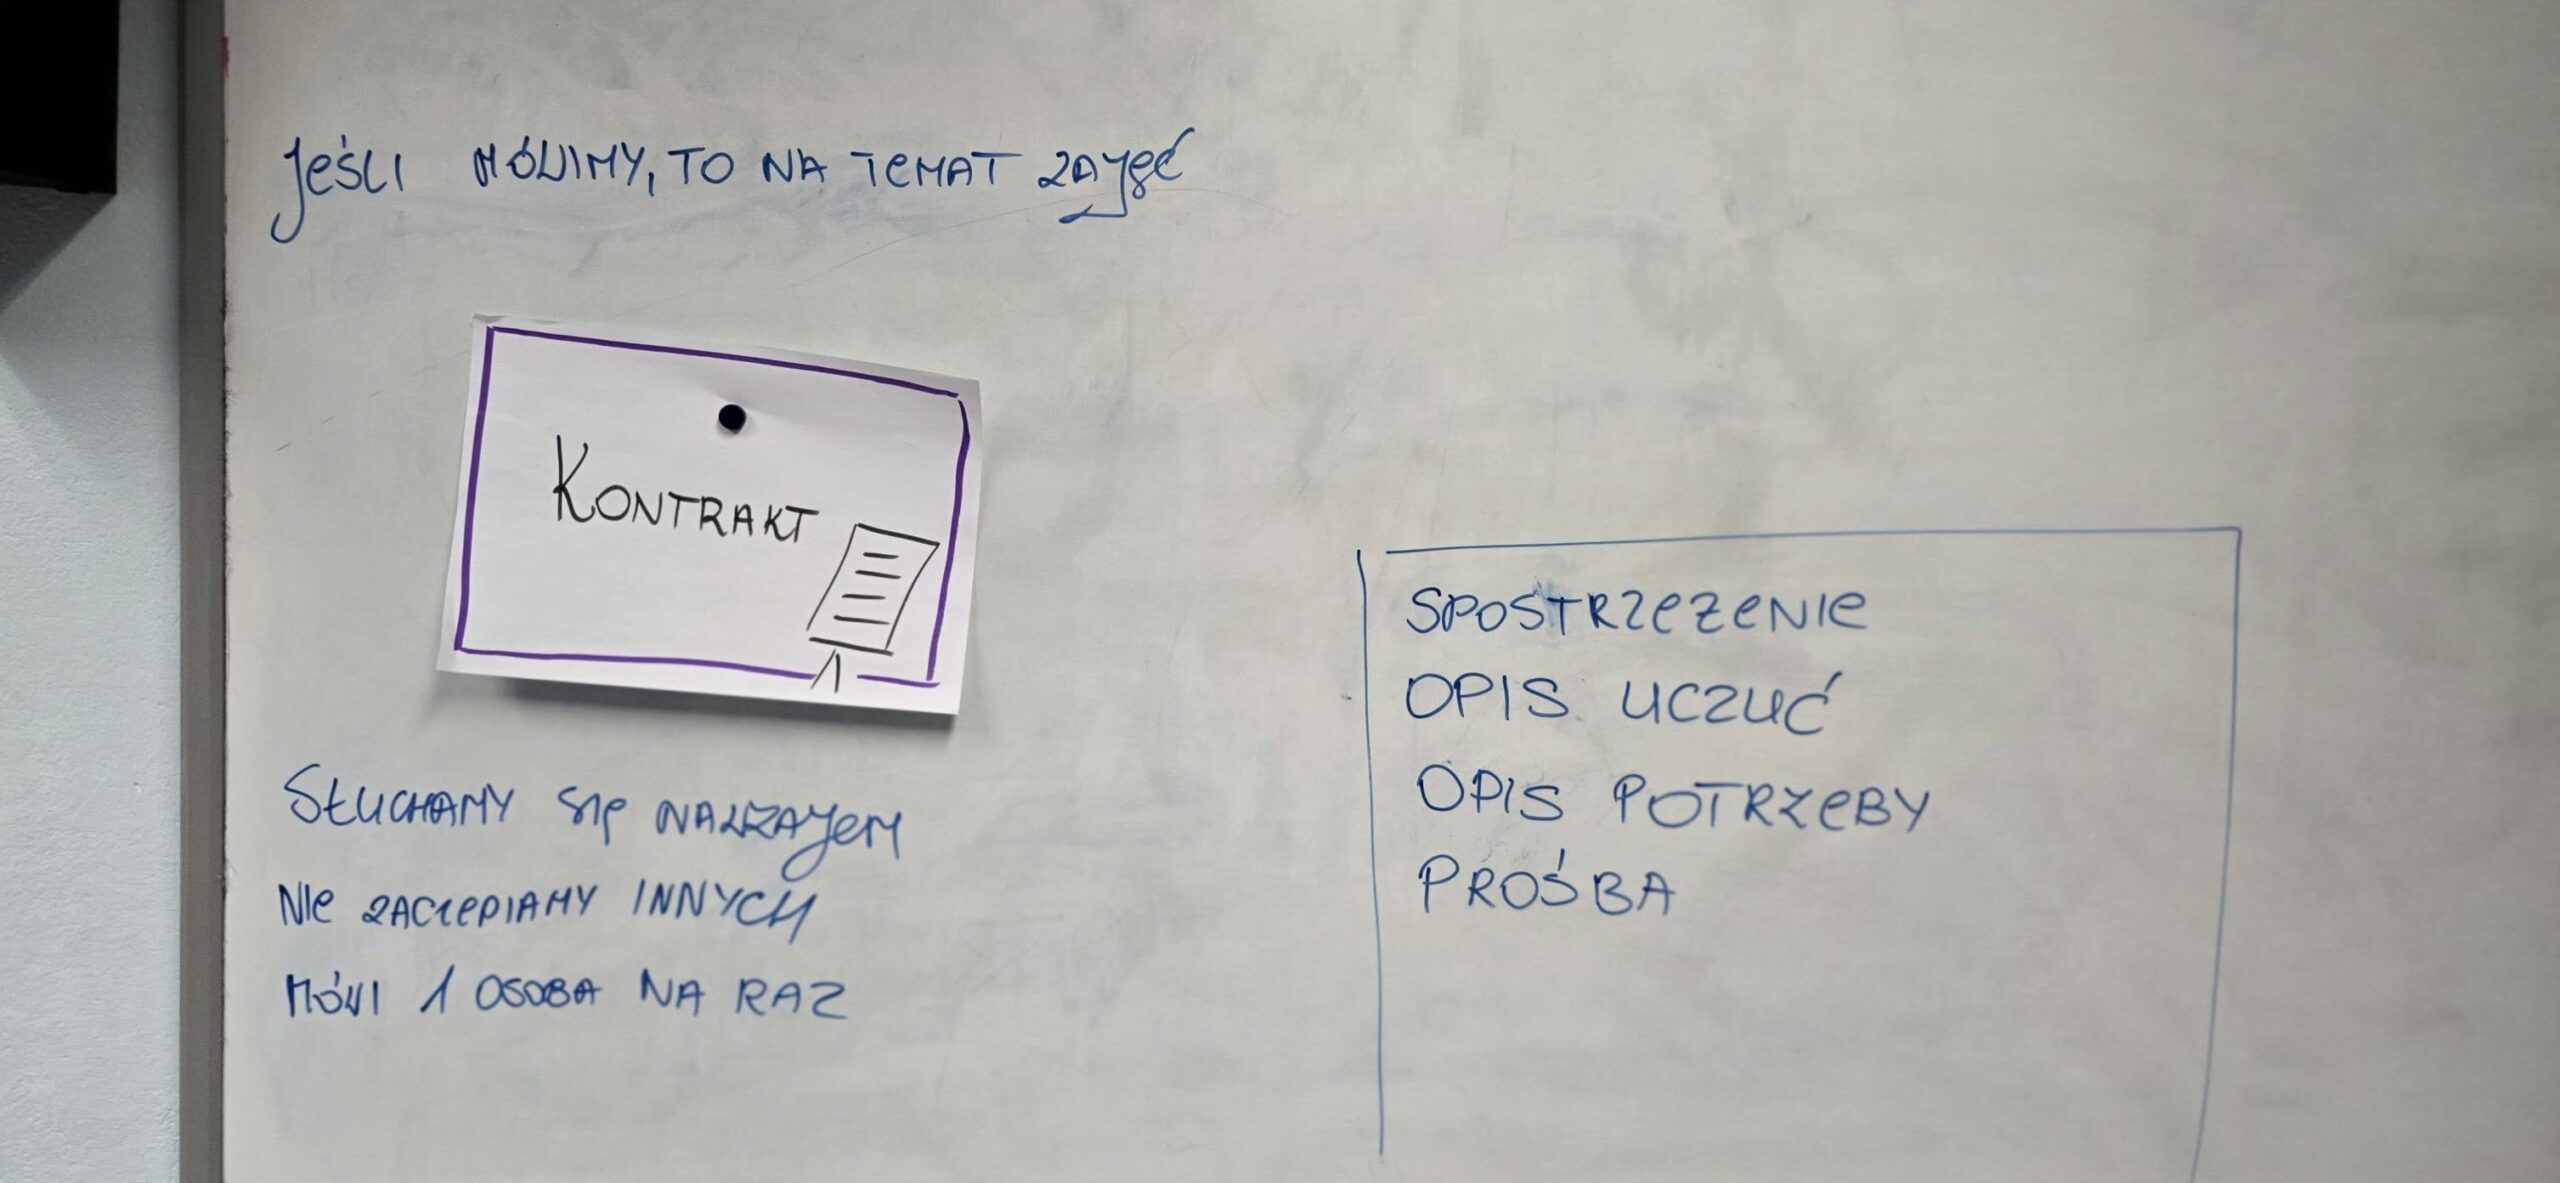 Jeśli MÓWIMY, TO NA TEMAT ZAJĘĆ
KONTRAKT
SŁUCHAMY SIĘ NAWZAJEM
NIE ZACZEPIAMY INNYCH
MÓWI 1 OSOBA NA RAZ
SPOSTRZEŻENIE
OPIS UCZUĆ
OPIS POTRZEBY
PROŚBA